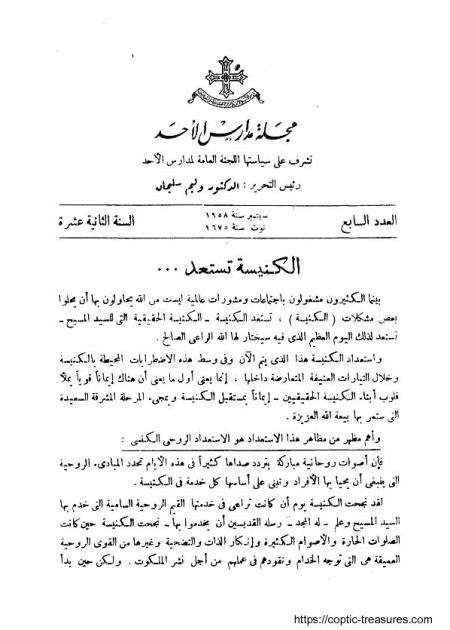 مجلة مدارس الأحد
تشرف على سياستها اللجنة العامة لمدارس الأحد
رئيس التحرير : الدكتور وليم سليمان
العدد السابع
سبتمبر سنة ١٩٥٨
توت سنة ١٦٧٥
السنة الثانية عشرة
الكنيسة تستعد ...
بينما الكثيرون مشغولون باجتماعات ومشورات عالمية ليست من الله يحاولون بها أن يحلوا
بعض مشكلات ( الكنيسة ) ، تستعد الكنيسة – الكنيسة الحقيقية التى للسيد المسيح –
تستعد لذلك اليوم العظيم الذى فيه سيختار لها الله الراعى الصالح .
واستعداد الكنيسة هذا الذى يتم الآن وفى وسط هذه الاضطرابات المحيطة بالكنيسة
وخلال التيارات العنيفة المتعارضة داخلها ، إنما يعنى أول ما يعنى أن هناك إيماناً قوياً يملأ
قلوب أبناء الكنيسة الحقيقيين – إيماناً بمستقبل الكنيسة وبمجىء المرحلة المشرقة السعيدة
التى ستمر بها بيعة الله العزيزة .
وأهم مظهر من مظاهر هذا الاستعداد هو الاستعداد الروحى الكنسى :
فإن أصوات روحانية مباركة يتردد صداها كثيراً فى هذه الأيام تحدد المبادىء الروحية
التى ينبغى أن يحيا بها الأفراد وتبنى على أساسها كل خدمة فى الكنيسة .
لقد نجحت الكنيسة يوم أن كانت تراعى فى خدمتها القيم الروحية السامية التى خدم بها
السيد المسيح وعلم – له المجد – رسله القديسين أن يخدموا بها – نجحت الكنيسة حين كانت
الصلوات الحارة والأصوام الكثيرة وإنكار الذات والتضحية وغيرها من القوى الروحية
العميقة هى التى توجه الخدام وتقودهم فى عملهم من أجل نشر الملكوت . ولكن حين بدأ
https://coptic-treasures.com/